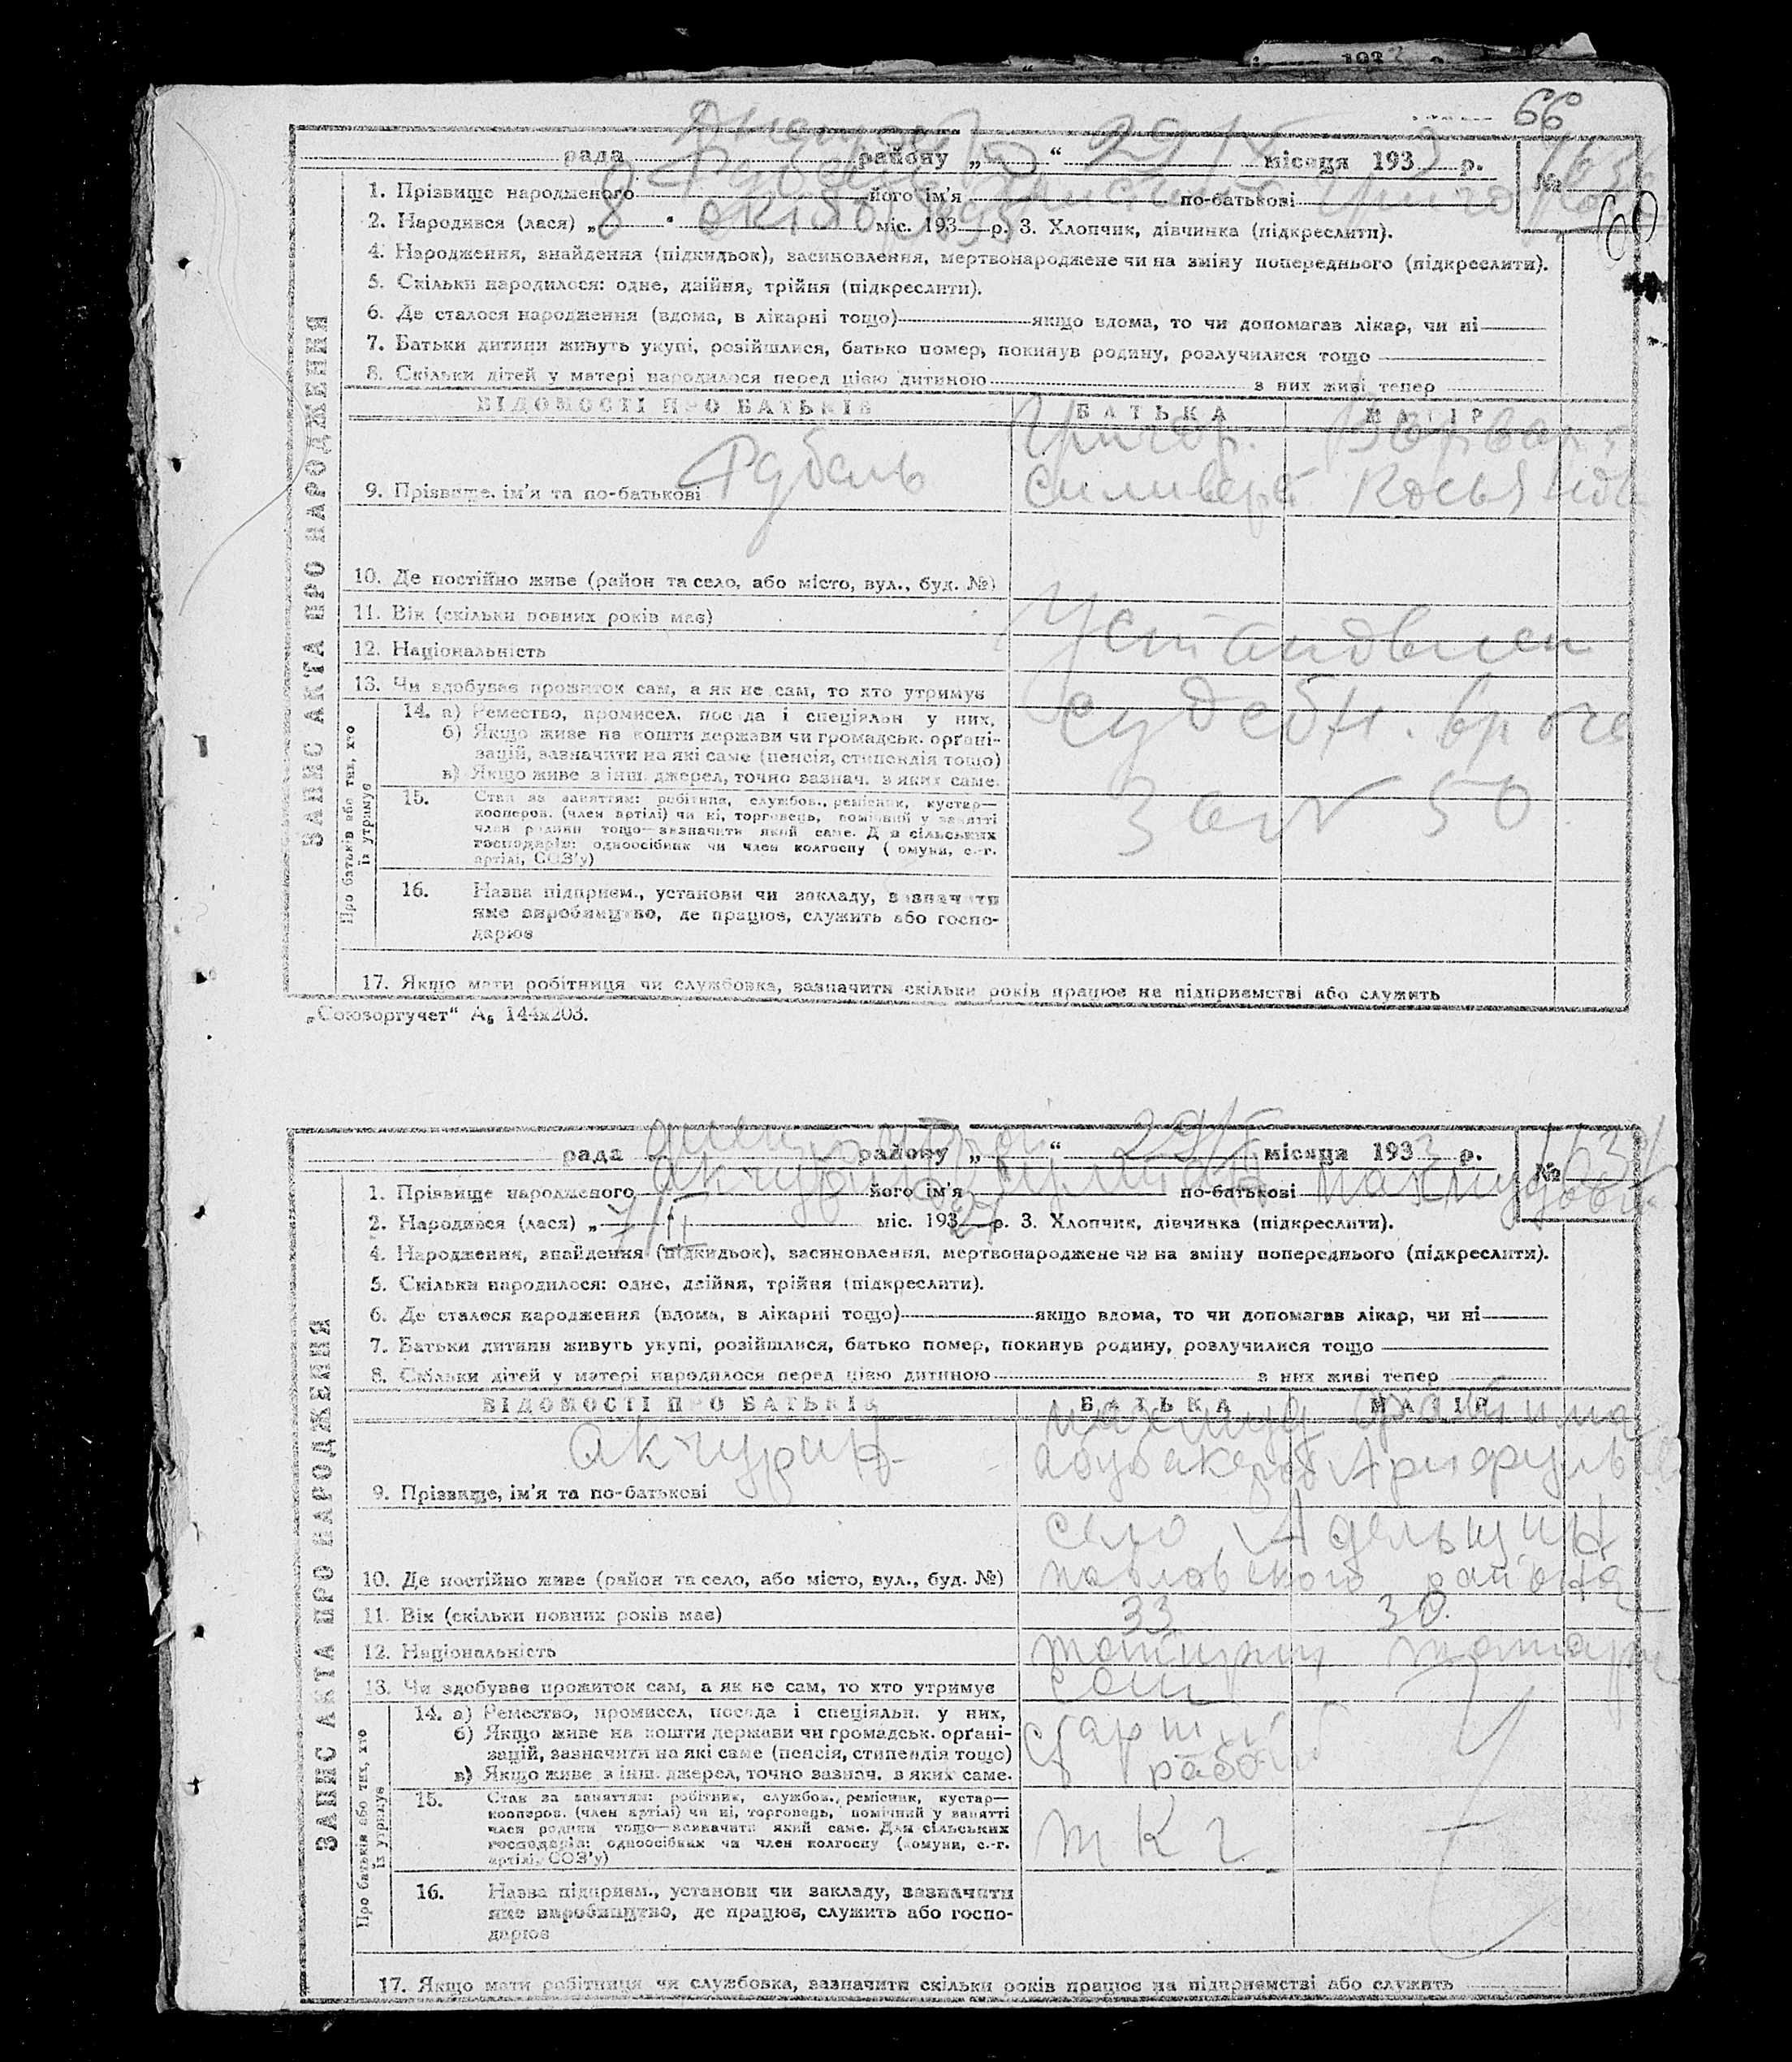 193
66
60
рада району „ “ 29/V місяця 1933 р.
№
1. Прізвище народженого його ім'я по-батькові
2. Народився (лася) „ 8 " міс. 193 р. 3. Хлопчик, дівчинка (підкреслити).
4. Народження, знайдення (підкидьок), засиновлення, мертвонароджене чи на зміну попереднього (підкреслити).
5. Скільки народилося: одне, двійня, трійня (підкреслити).
6. Де сталося народження (вдома, в лікарні тощо) якщо вдома, то чи допомагав лікар, чи ні
7. Батьки дитини живуть укупі, розійшлися, батько помер, покинув родину, розлучилися тощо
8. Скільки дітей у матері народилося перед цією дитиною з них живі тепер
ЗАПИС АКТА ПРО НАРОДЖЕННЯ
ВІДОМОСТІ ПРО БАТЬКІВ БАТЬКА МАТІР
Григор. Варвара
9. Прізвище, ім'я та по-батькові
10. Де постійно живе (район та село, або місто, вул., буд. №)
11. Вік (скільки повних років має)
Установлен
12. Національність
13. Чи здобуває прожиток сам, а як не сам, то хто утримує
судебн. враче
Про батьків або тих, хто їх утримує
14. а) Ремество, промисел, посада і спеціяльн. у них,
б) Якщо живе на кошти держави чи громадськ. орґані-
зацій, зазначити на які саме (пенсія, стипендія тощо)
в) Якщо живе з інш. джерел, точно зазнач. з яких саме.
За № 50
15. Стан за заняттям: робітник, службов., ремісник, кустар—
кооперов. (член артілі) чи ні, торговець, помічний у занятті
член родини тощо—зазначити який саме. Для сільських
господарів: одноосібник чи член колгоспу (комуни, с.-г.
артілі, СОЗ'у)
16. Назва підприєм., установи чи закладу, зазначити
яке виробництво, де працює, служить або госпо-
дарює
17. Якщо мати робітниця чи службовка, зазначити скільки років працює на підприємстві або служить
„Союзоргучет“ А₅ 144х203.
рада району „ “ 29/V місяця 1933 р.
№
1. Прізвище народженого Акчурин його ім'я по-батькові
2. Народився (лася) „ 7/II міс. 193 р. 3. Хлопчик, дівчинка (підкреслити).
4. Народження, знайдення (підкидьок), засиновлення, мертвонароджене чи на зміну попереднього (підкреслити).
5. Скільки народилося: одне, двійня, трійня (підкреслити).
6. Де сталося народження (вдома, в лікарні тощо) якщо вдома, то чи допомагав лікар, чи ні
7. Батьки дитини живуть укупі, розійшлися, батько помер, покинув родину, розлучилися тощо
8. Скільки дітей у матері народилося перед цією дитиною з них живі тепер
ЗАПИС АКТА ПРО НАРОДЖЕННЯ
ВІДОМОСТІ ПРО БАТЬКІВ БАТЬКА МАТІР
Акчурин Махмуд Фатима
9. Прізвище, ім'я та по-батькові
село
10. Де постійно живе (район та село, або місто, вул., буд. №) Павловского района
11. Вік (скільки повних років має) 33 30
12. Національність татарин татарк
13. Чи здобуває прожиток сам, а як не сам, то хто утримує сам
Про батьків або тих, хто їх утримує
14. а) Ремество, промисел, посада і спеціяльн. у них,
б) Якщо живе на кошти держави чи громадськ. орґані-
зацій, зазначити на які саме (пенсія, стипендія тощо)
в) Якщо живе з інш. джерел, точно зазнач. з яких саме.
15. Стан за заняттям: робітник, службов., ремісник, кустар—
кооперов. (член артілі) чи ні, торговець, помічний у занятті
член родини тощо—зазначити який саме. Для сільських
господарів: одноосібник чи член колгоспу (комуни, с.-г.
артілі, СОЗ'у)
16. Назва підприєм., установи чи закладу, зазначити
яке виробництво, де працює, служить або госпо-
дарює
17. Якщо мати робітниця чи службовка, зазначити скільки років працює на підприємстві або служить